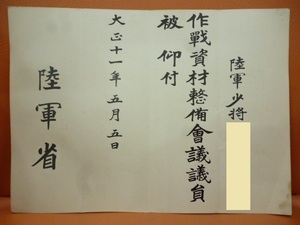 陸軍少將
作戰資材整備會議議員
被仰付
大正十一年五月五日
陸軍省